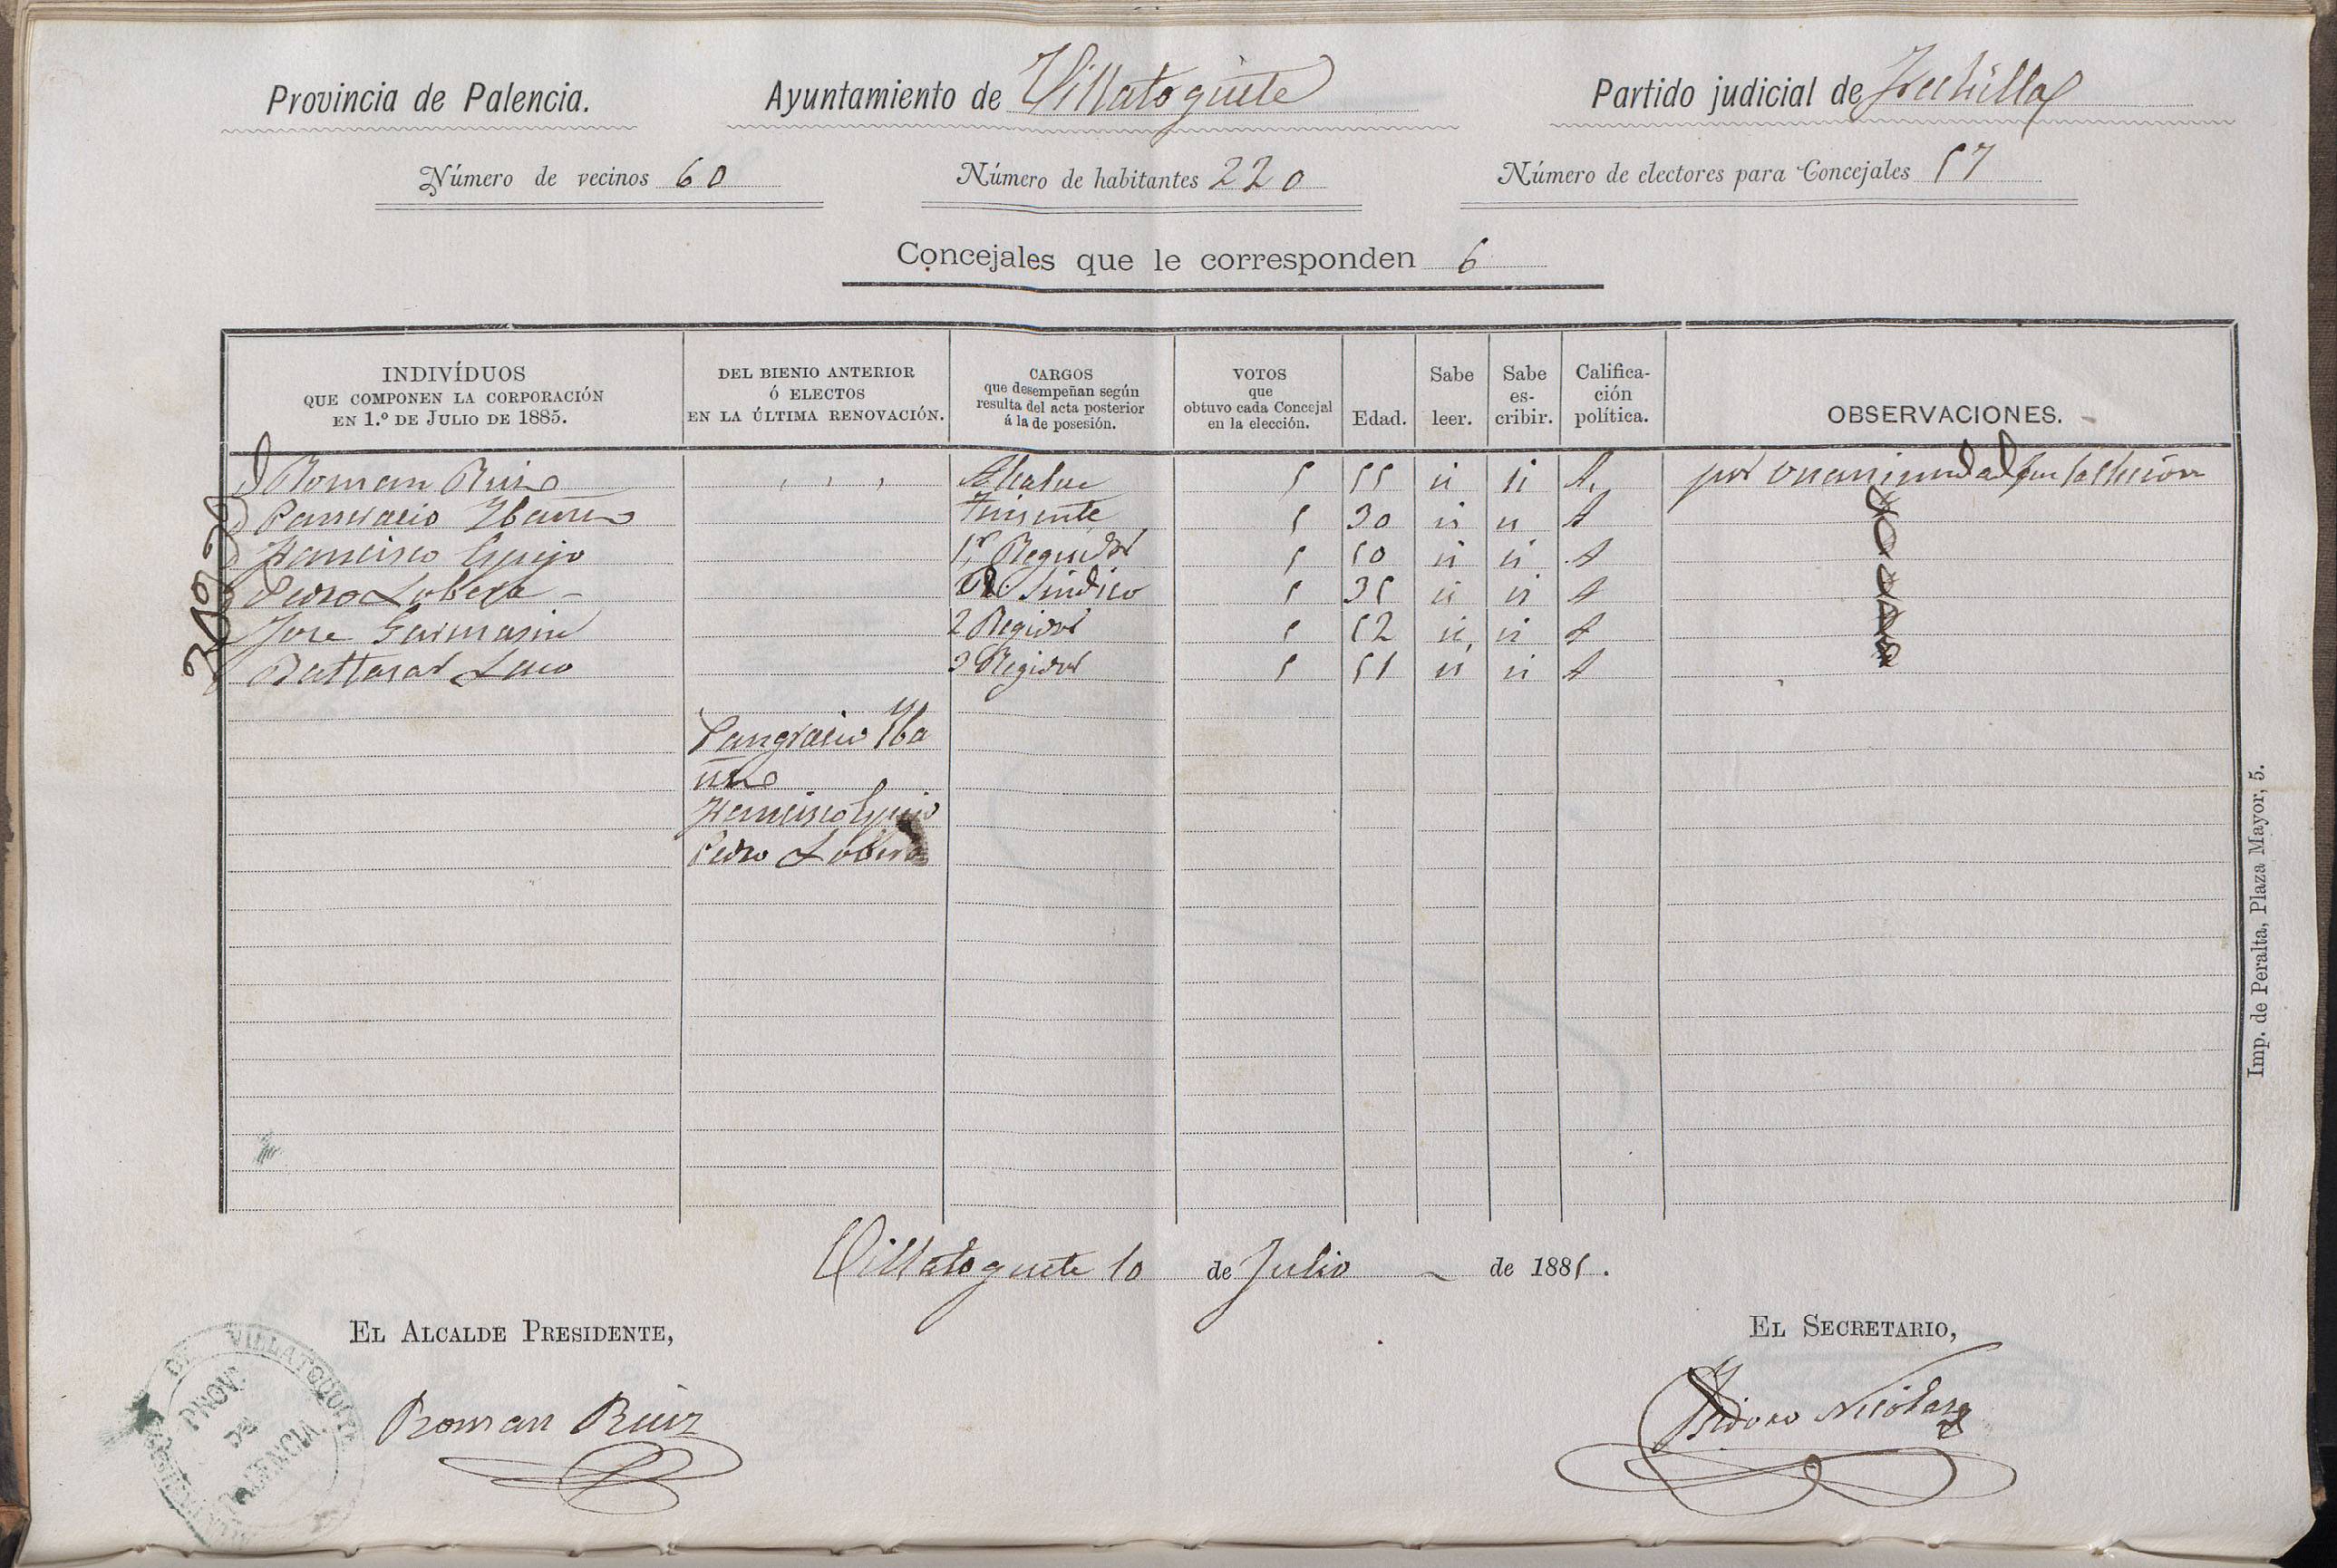 Provincia de Palencia. Ayuntamiento de Villatoquite Partido judicial de Frechilla
Número de vecinos 60 Número de habitantes 220 Número de electores para Concejales 57
Concejales que le corresponden 6
INDIVÍDUOS QUE COMPONEN LA CORPORACIÓN EN 1.º DE JULIO DE 1885. DEL BIENIO ANTERIOR Ó ELECTOS EN LA ÚLTIMA RENOVACIÓN. CARGOS que desempeñan según resulta del acta posterior á la de posesión. VOTOS que obtuvo cada Concejal en la elección. Edad. Sabe leer. Sabe es-cribir. Califica-ción política. OBSERVACIONES.
D Roman Ruiz , , , Alcalde 5 55 si si A. por unanimidad fue la elección
D Pancracio Ibañez Teniente 5 30 si si A
D Francisco Guijo 1r Regidor 5 50 si si A
Pedro Lobera Sindico 5 35 si si A
Jose 2 Regidor 5 52 si si A
Baltasar Laso 3 Regidor 5 51 si si A
Pangracio Yba
ñez
Francisco Guijo
Pedro Lobera
Villatoquite 10 de Julio de 1885.
EL ALCALDE PRESIDENTE, EL SECRETARIO,
Roman Ruiz Isidoro Nicolas
DE VILLATOQUITE
PROV. DE PALENCIA
Imp. de Peralta, Plaza Mayor, 5.